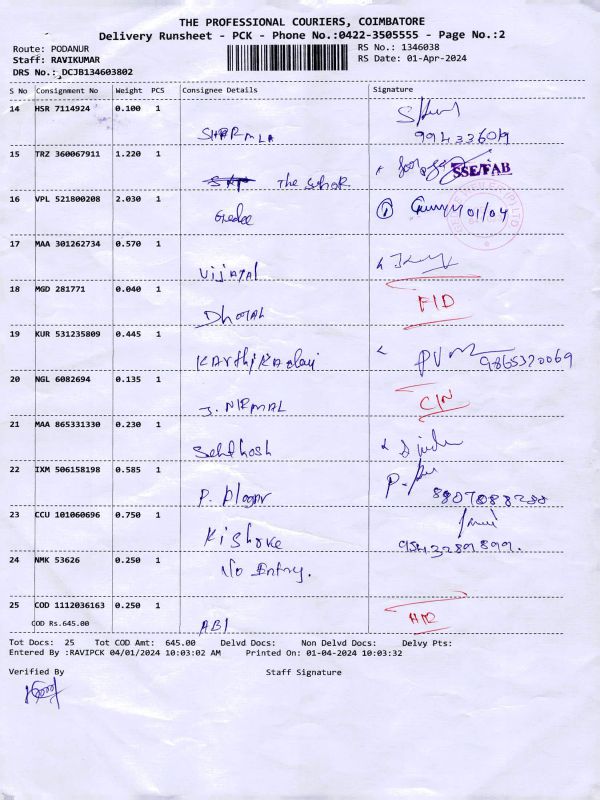 THE PROFESSIONAL COURIERS, COIMBATORE
Delivery Runsheet - PCK - Phone No.:0422-3505555 - Page No.:2
Route: PODANUR
RS No.: 1346038
Staff: RAVIKUMAR
RS Date: 01-Apr-2024
DRS No.: DCJB134603802
S No Consignment No Weight PCS Consignee Details Signature
14 HSR 7114924 0.100 1
SHARMLA
15 TRZ 360067911 1.220 1
SSE/FAB
The
16 VPL 521800208 2.030 1
Gedee 01/04
17 MAA 301262734 0.570 1
Vijayal
18 MGD 281771 0.040 1
FID
19 KUR 531235809 0.445 1
9865320069
20 NGL 6082694 0.135 1
J. NIRMAL C/N
21 MAA 865331330 0.230 1
22 IXM 506158198 0.585 1
P.
23 CCU 101060696 0.750 1
Kishore
24 NMK 53626 0.250 1
No Entry.
25 COD 1112036163 0.250 1
COD Rs.645.00
ABI
Tot Docs: 25 Tot COD Amt: 645.00 Delvd Docs: Non Delvd Docs: Delvy Pts:
Entered By :RAVIPCK 04/01/2024 10:03:02 AM Printed On: 01-04-2024 10:03:32
Verified By Staff Signature